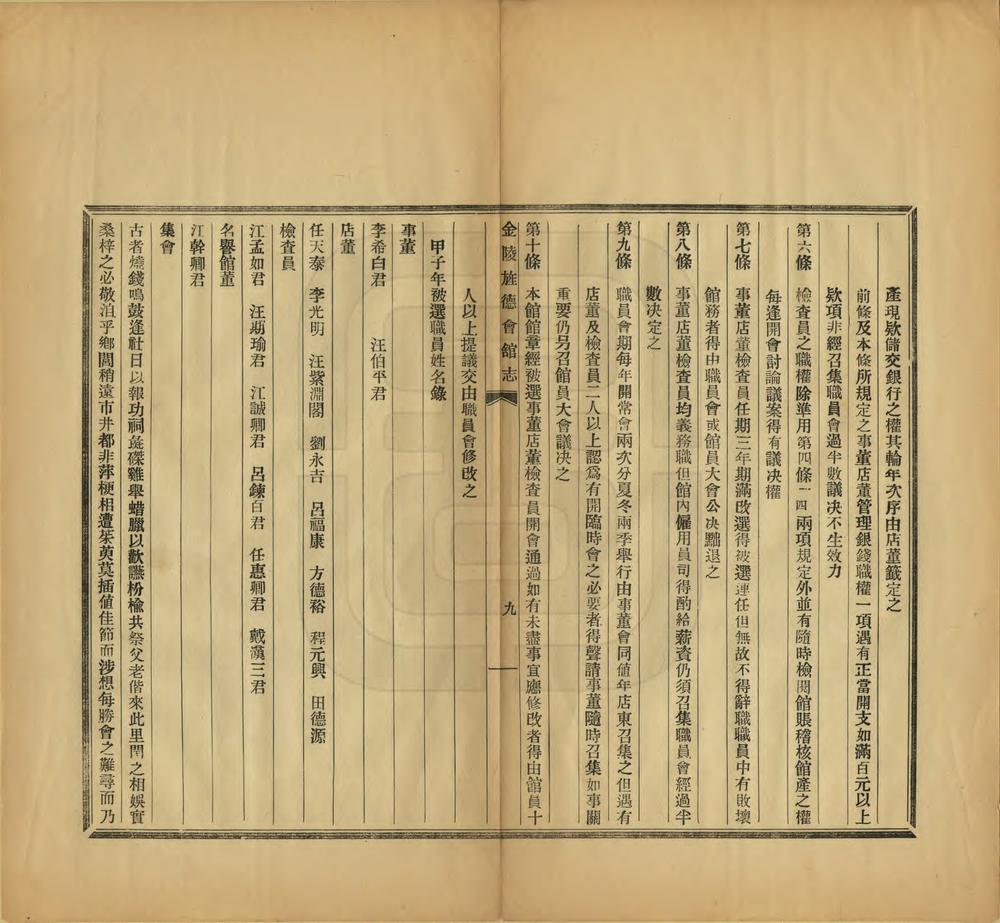 產現欵儲交銀行之權其輪年次序由店董籤定之
前條及本條所規定之事董店董管理銀錢職權一項遇有正當開支如滿百元以上
欵項非經召集職員會過半數議决不生效力
第六條　檢查員之職權除準用第四條一四兩項規定外並有隨時檢閱館賬稽核館產之權
每逢開會討論議案得有議决權
第七條　事董店董檢查員任期三年期滿改選得被選連任但無故不得辭職職員中有敗壞
館務者得由職員會或館員大會公决黜退之
第八條　事董店董檢查員均義務職但館內僱用員司得酌給薪資仍須召集職員會經過半
數决定之
第九條　職員會期每年開常會兩次分夏冬兩季舉行由事董會同値年店東召集之但遇有
店董及檢查員二人以上認爲有開臨時會之必要者得聲請事董隨時召集如事關
重要仍另召館員大會議决之
第十條　本館館章經被選事董店董檢查員開會通過如有未盡事宜應修改者得由館員十
金陵旌德會舘志　九
人以上提議交由職員會修改之
甲子年被選職員姓名錄
事董
李希白君　汪伯平君
店董
任天泰　李光明　汪紫淵閣　劉永吉　呂福康　方德裕　程元興　田德源
檢查員
江孟如君　汪炳瑜君　江誠卿君　呂鍊百君　任惠卿君　戴漢三君
名譽館董
江幹卿君
集會
古者燒錢鳴鼓逢社日以報功祠彘磔雞舉蜡臘以歡讌枌楡共祭父老偕來此里閈之相娛實
桑梓之必敬洎乎鄉閭稍遠市井都非萍梗相遭茱萸莫插値佳節而涉想每勝會之難尋而乃